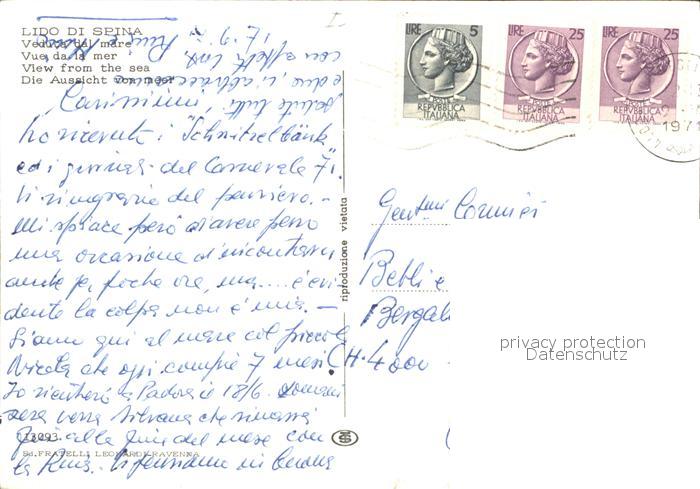 LIDO DI SPINA
Veduta dal mare
Vue da la mer
View from the sea
Die Aussicht vom meer
Carissimi,
ho ricevuto i "Schnitzelbänk"
ed i giornali del Carnevale 71.
Vi ringrazio del pensiero. -
Mi spiace però di avere perso
una occasione d'incontarvi
anche per poche ore, ma.... è evi
dente la colpa non è mia. -
Siamo qui al mare col piccolo
Nicola che oggi compie 7 mesi!
Io rientrerò a Padova il 18/6. domani
sera verrà Silvana che rimarrà
qui alla fine del mese con
la
13093
Ed. FRATELLI LEONARDI RAVENNA
saluta tutti
con affetto
17.6.71
riproduzione vietata
LIRE 5
POSTE
REPVBBLICA
ITALIANA
LIRE 25
POSTE
REPVBBLICA
ITALIANA
LIRE 25
POSTE
REPVBBLICA
ITALIANA
1971
Gent.mi
CH. 4000
privacy protection
Datenschutz